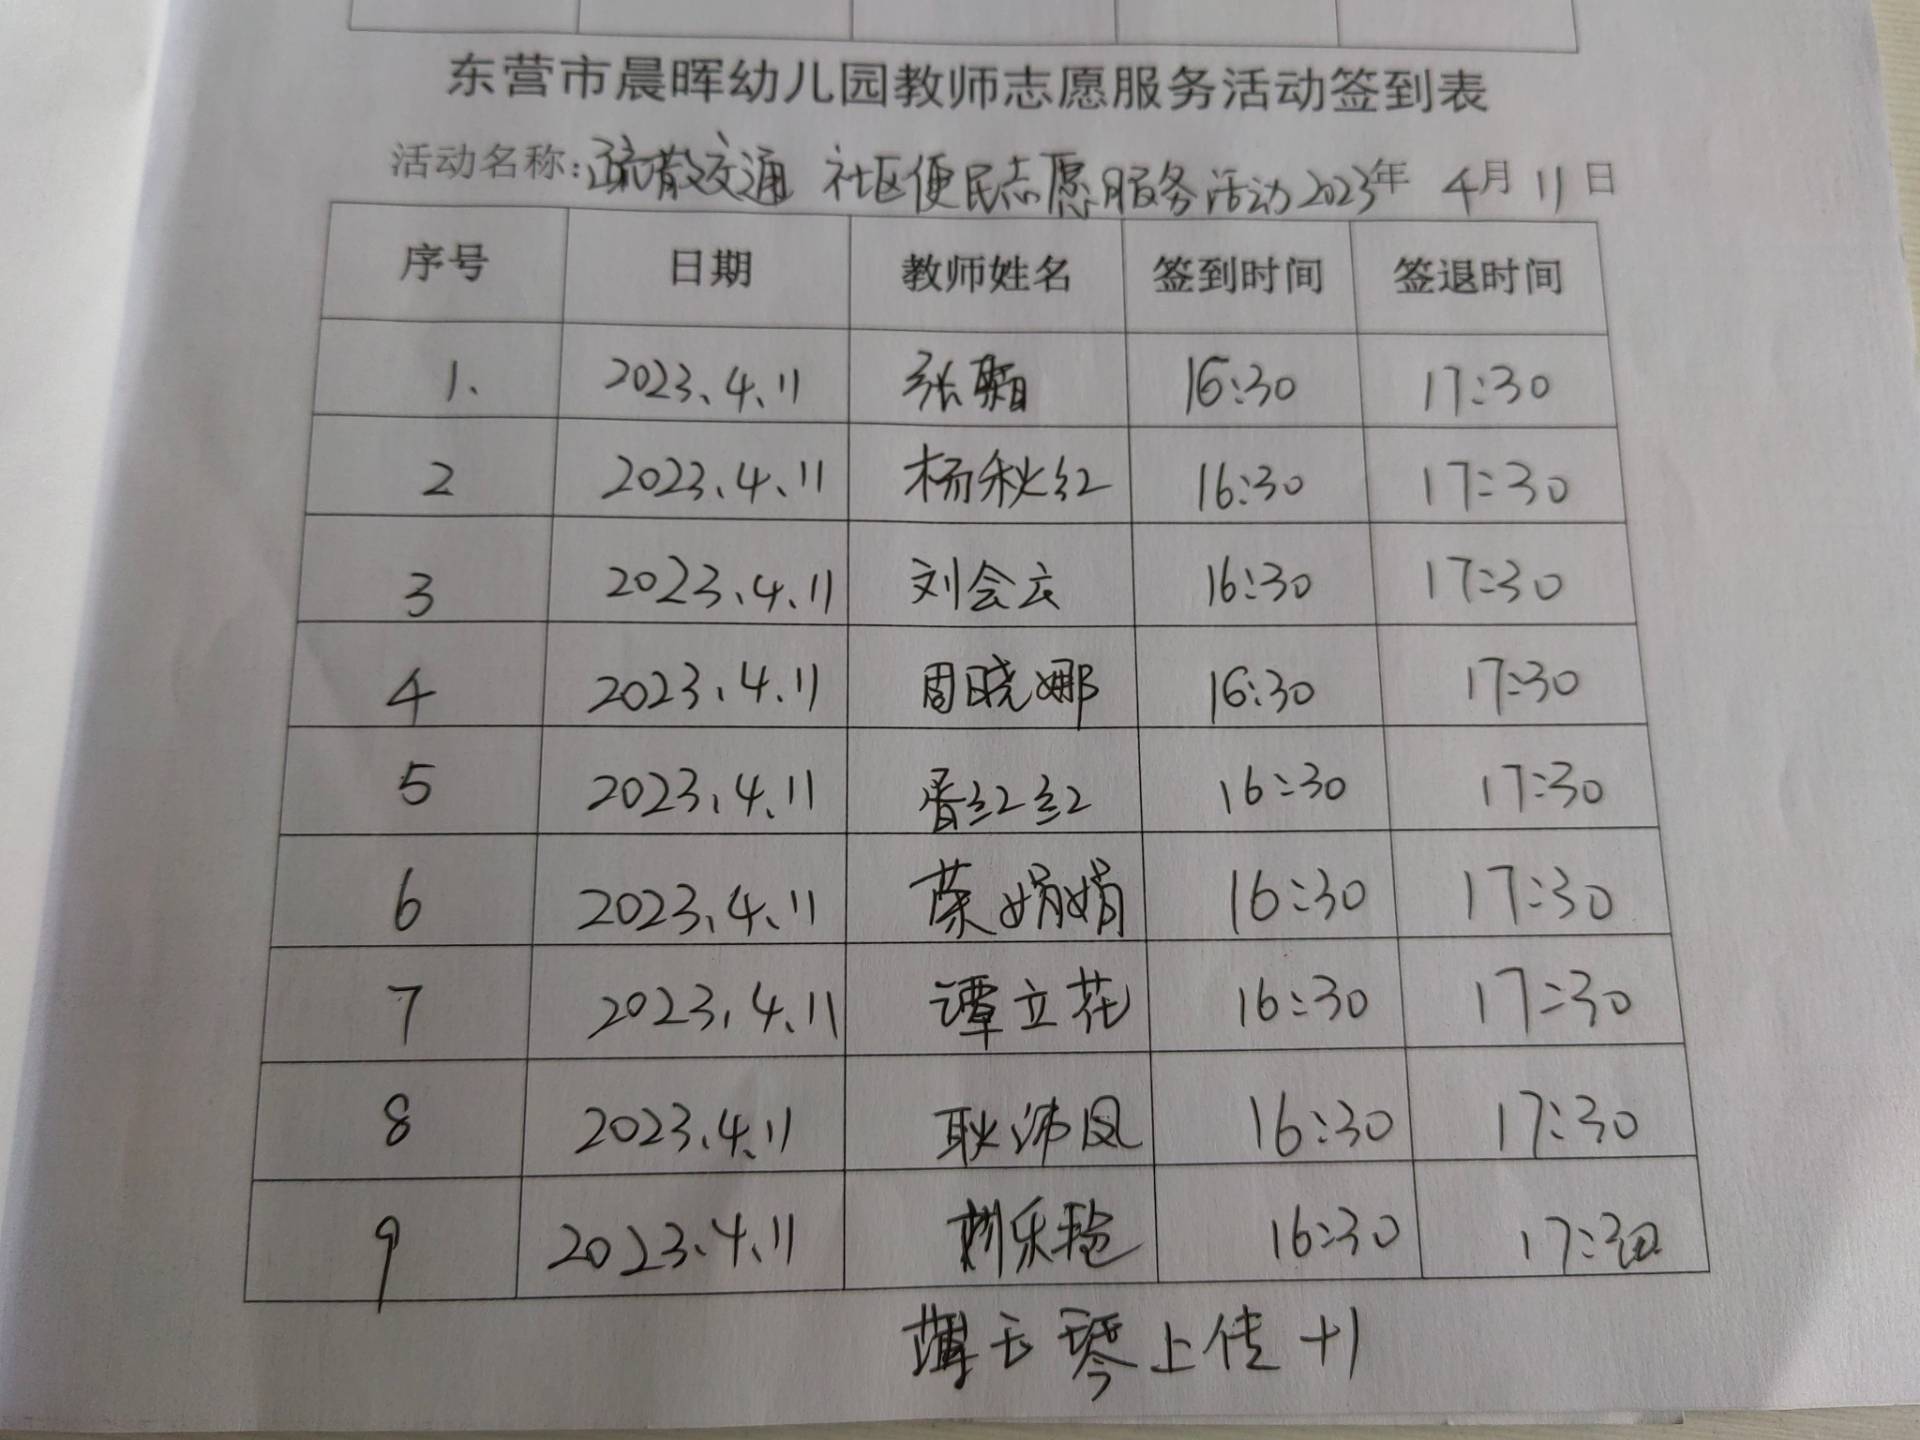 东营市晨晖幼儿园教师志愿服务活动签到表
活动名称:疏散交通 社区便民志愿服务活动2023年 4月11日
序号 日期 教师姓名 签到时间 签退时间
1. 2023、4、11 张颖 16:30 17:30
2 2023、4、11 杨秋红 16:30 17:30
3 2023、4、11 刘会云 16:30 17:30
4 2023、4、11 周晓娜 16:30 17:30
5 2023、4、11 红红 16:30 17:30
6 2023、4、11 蔡娟娟 16:30 17:30
7 2023、4、11 谭立花 16:30 17:30
8 2023、4、11 耿沛凤 16:30 17:30
9 2023、4、11 16:30 17:30
薄云琴上传+1